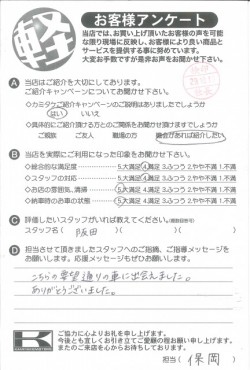 軽
お客様アンケート
当店では、お買い上げ頂いたお客様の声を可能
な限り現場に反映し、お客様により良い商品と
サービスを提供する事に努めています。
大変お手数ですが是非お声をお聞かせ下さい。
A 当店はご紹介を大切にしております。
ご紹介キャンペーンについてお聞かせ下さい。
◇カミタケご紹介キャンペーンのご説明はありましたでしょうか
はい いいえ
◇具体的にご紹介頂ける方とのご関係をお聞かせ頂けますでしょうか
ご親族 ご友人 職場の方 機会があれば紹介したい
B 当店を実際にご利用になった印象をお聞かせ下さい。
◇総合的な満足度 5.大満足 4.満足 3.ふつう 2.やや不満 1.不満
◇スタッフの対応 5.大満足 4.満足 3.ふつう 2.やや不満 1.不満
◇お店の雰囲気、清掃 5.大満足 4.満足 3.ふつう 2.やや不満 1.不満
◇納車時のお車の状態 5.大満足 4.満足 3.ふつう 2.やや不満 1.不満
C 評価したいスタッフがいれば教えてください。(複数回答可)
スタッフ名( 阪田 )
D 担当させて頂きましたスタッフへのご指摘、ご指導メッセージを
お願いします。応援メッセージもぜひお願いします。
こちらの要望通りの車に出会えました。
ありがとうございました。
ご協力に心よりお礼を申し上げます。
今後とも宜しくお引き立てご愛顧の程お願い申し上げます。
またのご来店を心からお待ちしております。
担当( 保岡 )